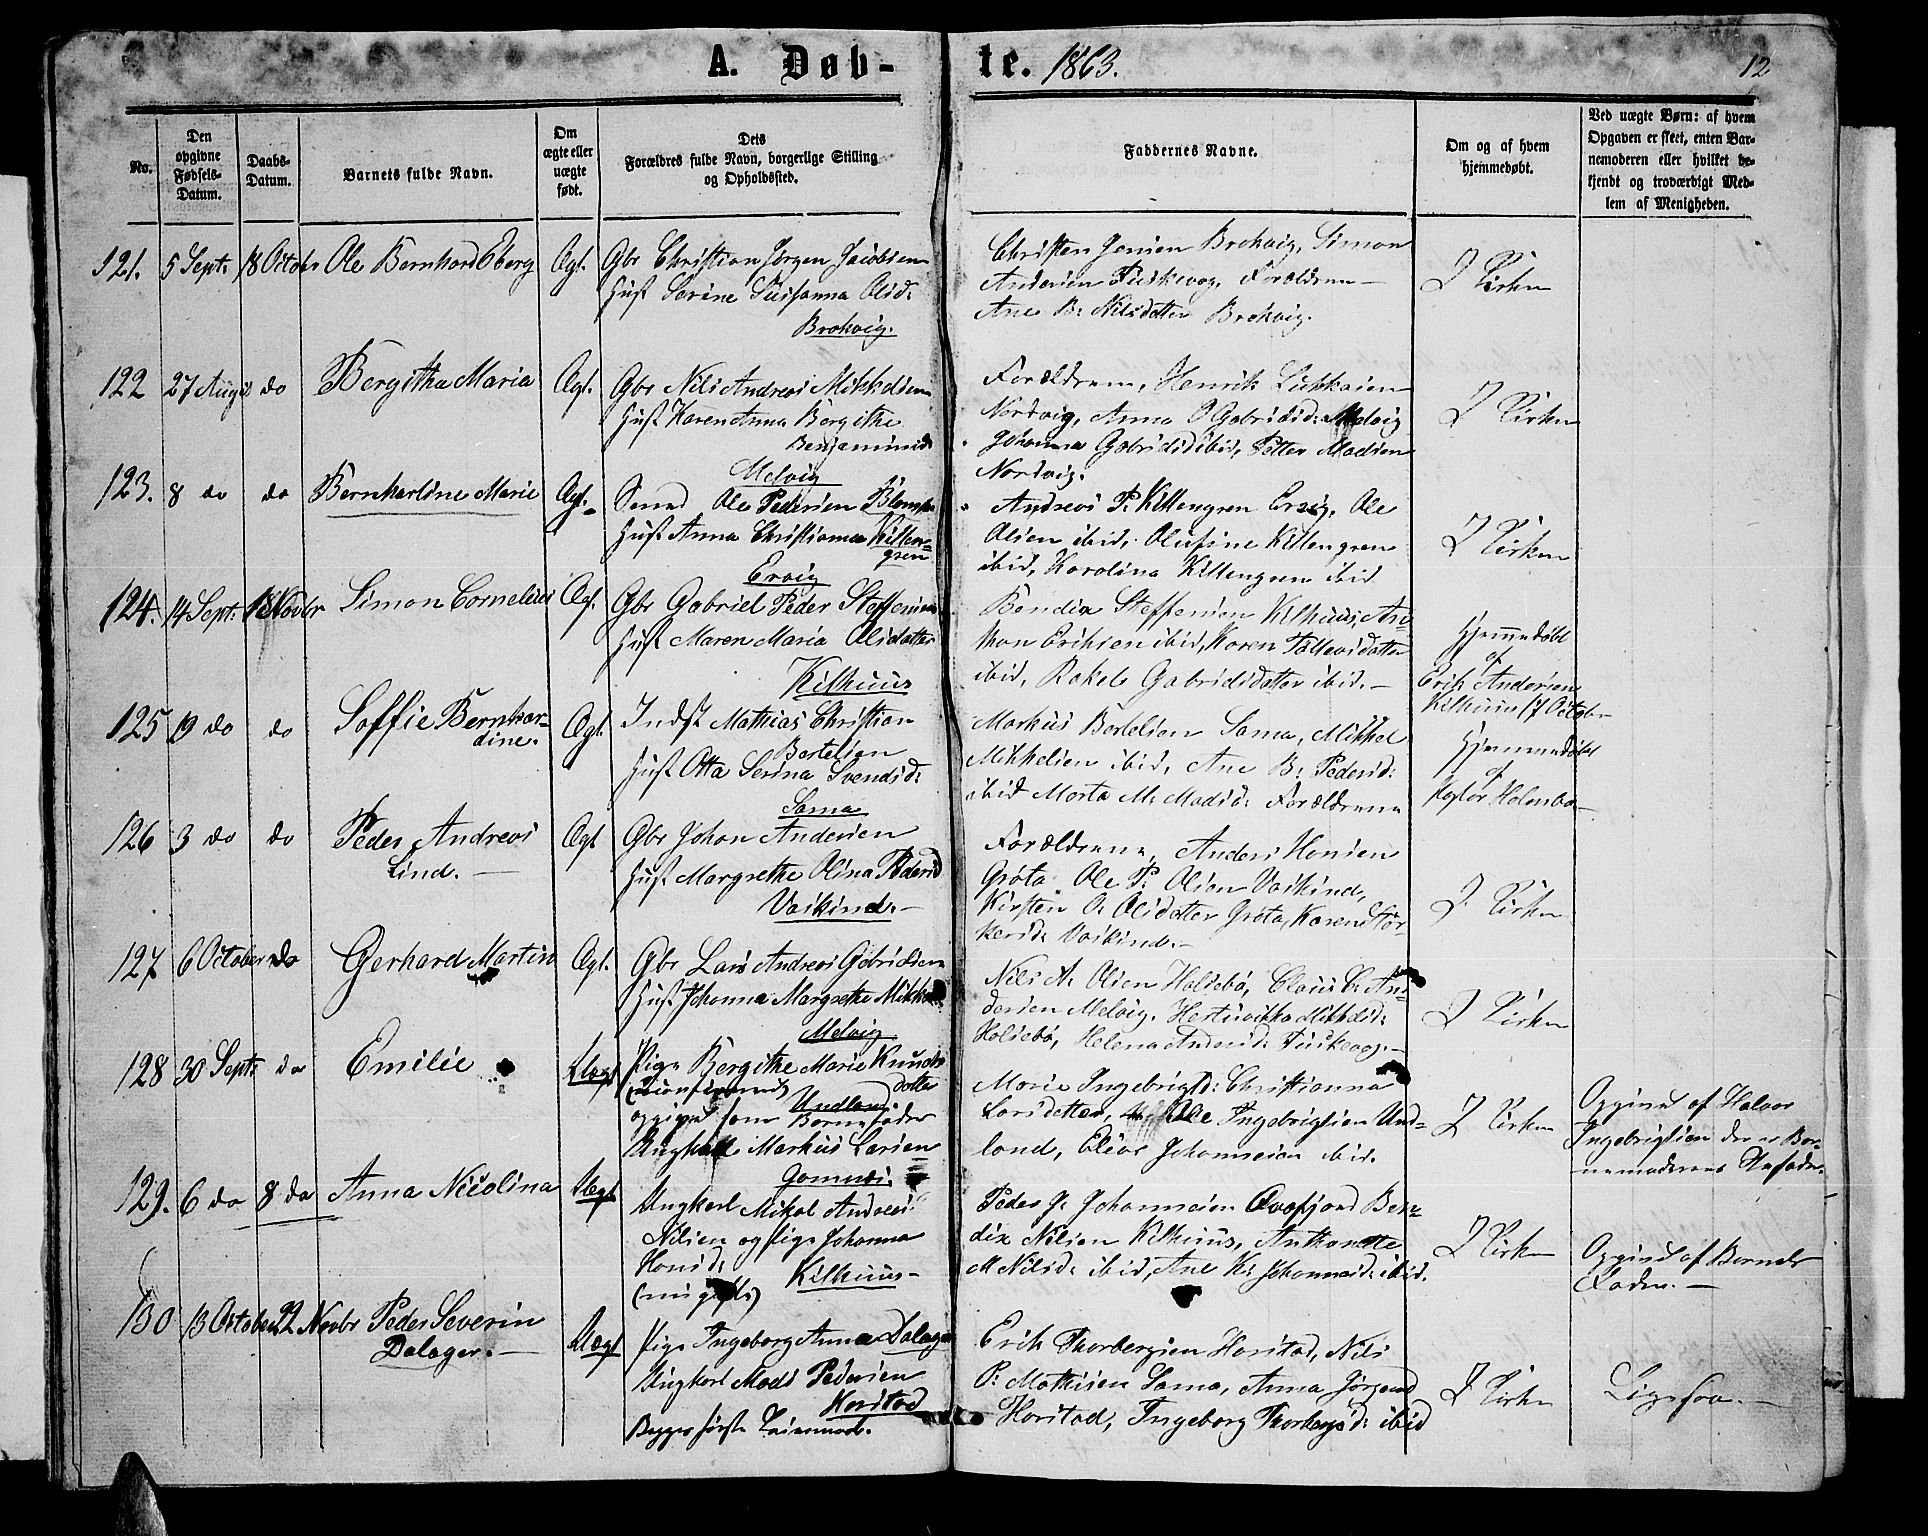 A. Døb-
te. 1863.
12
No.
Den
opgivne
Fødsels-
Datum.
Daabs-
Datum.
Barnets fulde Navn.
Om
ægte eller
uægte
født.
Dets
Forældres fulde Navn, borgerlige Stilling
og Opholdssted.
Faddernes Navne.
Om og af hvem
hjemmedøbt.
Ved uægte Børn: af hvem
Opgaven er skeet, enten Bar-
nemoderen eller hvilket be-
kjendt og troværdigt Med-
lem af Menigheden.
121. 5 Sept: 18 Octobr Ole Bernhard Oberg Ægt.
Gbr Christian Jørgen Jacobsen
Hust Serine Susanna Olsd:
Brokvig.
Christen Jensen Brokvig, Simon
Andersen Fuskevog, Forældrene
Ane B: Nilsdatter Brokvig.
I Kirken
122 27 August do Bergitha Maria Ægt.
Gbr Nils Andreas Mikkelsen
Hust Karen Anna Bergithe
Benjaminsd:
Melvig
Forældrene, Henrik Lukkasen
Nordvig, Anna O Gabrielsd: Melvig
Johanna Gabrielsd ibid, Petter Madsen
Nordvig.
I Kirken
123. 8 do do Bernhartine Marie Ægt.
Ole Pedersen
Hust Anna Christianna Killen-
gren
Ervig
Andreas P. Killengren Ervig, Ole
Olsen ibid, Olufine Killengren
ibid, Karolina Killengren ibid
I Kirken
124. 14 Sept: 1 Novbr Simon Cornelius Ægt.
Gbr Gabriel Peder Steffensen
Hust Maren Maria Olsdatter
Kilhuus
Bendix Steffensen Kilhuus, An-
thon Eriksen ibid, Karen Tollevsdatter
ibid, Rakel Gabrielsdatter ibid.
Hjemmedøbt
af
Erik Andersen
Kilhuus 17 October
125 19 do do Soffie Bernhar-
dine. Ægt
Indst Mathias Christian
Bertelsen
Hust Otta Serina Svendsd:
Sama
Markus Bertelsen Sama, Mikkel
Mikkelsen ibid, Ane B: Pedersd:
ibid Marta M: Madsd: Forældrene
Hjemmedøbt
af
Holembo
126 3 do do Peder Andreas
Lind. Ægt
Gbr Johan Andersen
Hust Margrethe Olina Pedersd
Vaikind.
Forældrene, Anders Hansen
Grøta Ole P: Olsen Vaikind,
Kirsten O: Olsdatter Grøta, Karen
Vaikind.
I Kirken
127 6 October do Gerhard Martin Ægt.
Gbr Lars Andreas Gabrielsen
Hust Johanna Margrethe
Melvig
Nils A: Olsen Holsebø, Claus C: An-
dersen Melvig, Mikkelsd:
Holsebø, Helena Andersd: Fuskevog.
I Kirken
128 30 Sept: do Emilie Uægt
Pige Bergithe Marie Knuds-
datter
Undland
opgivet som Barnefader
Ungkarl Markus Larsen
Marie Ingebrigtsd: Christianna
Larsdatter, Ole Ingebrigtsen Und-
land, Elias Johannesen ibid.
I Kirken
Opgivet af Halvor
Ingebrigtsen der er Bar-
nemoderens
129. 6 do 8 do Anna Nicolina Uægt
Ungkarl Mikal Andreas
Nilsen og Pige Johanna
Hansd:
Kilhuus
Peder J: Johannesen Øvefjord Ben-
dix Nilsen Kilhuus, Anthonette
M Nilsd: ibid, Ane K: Johannesd: ibid.
I Kirken
Opgivet af Barnets
Fader.
130 13 October 22 Novbr Peder Severin
Dalager. Uægt
Pige Ingeborg Anna Dalager
Ungkarl Mads Pedersen
Horstad
Begges første Leiermaal.
Erik Thorbergsen Horstad, Nils
P: Mathisen Sama, Anna Jørgensd
Horstad, Ingeborg Thorbergsd: ibid
I Kirken
Ligesaa.